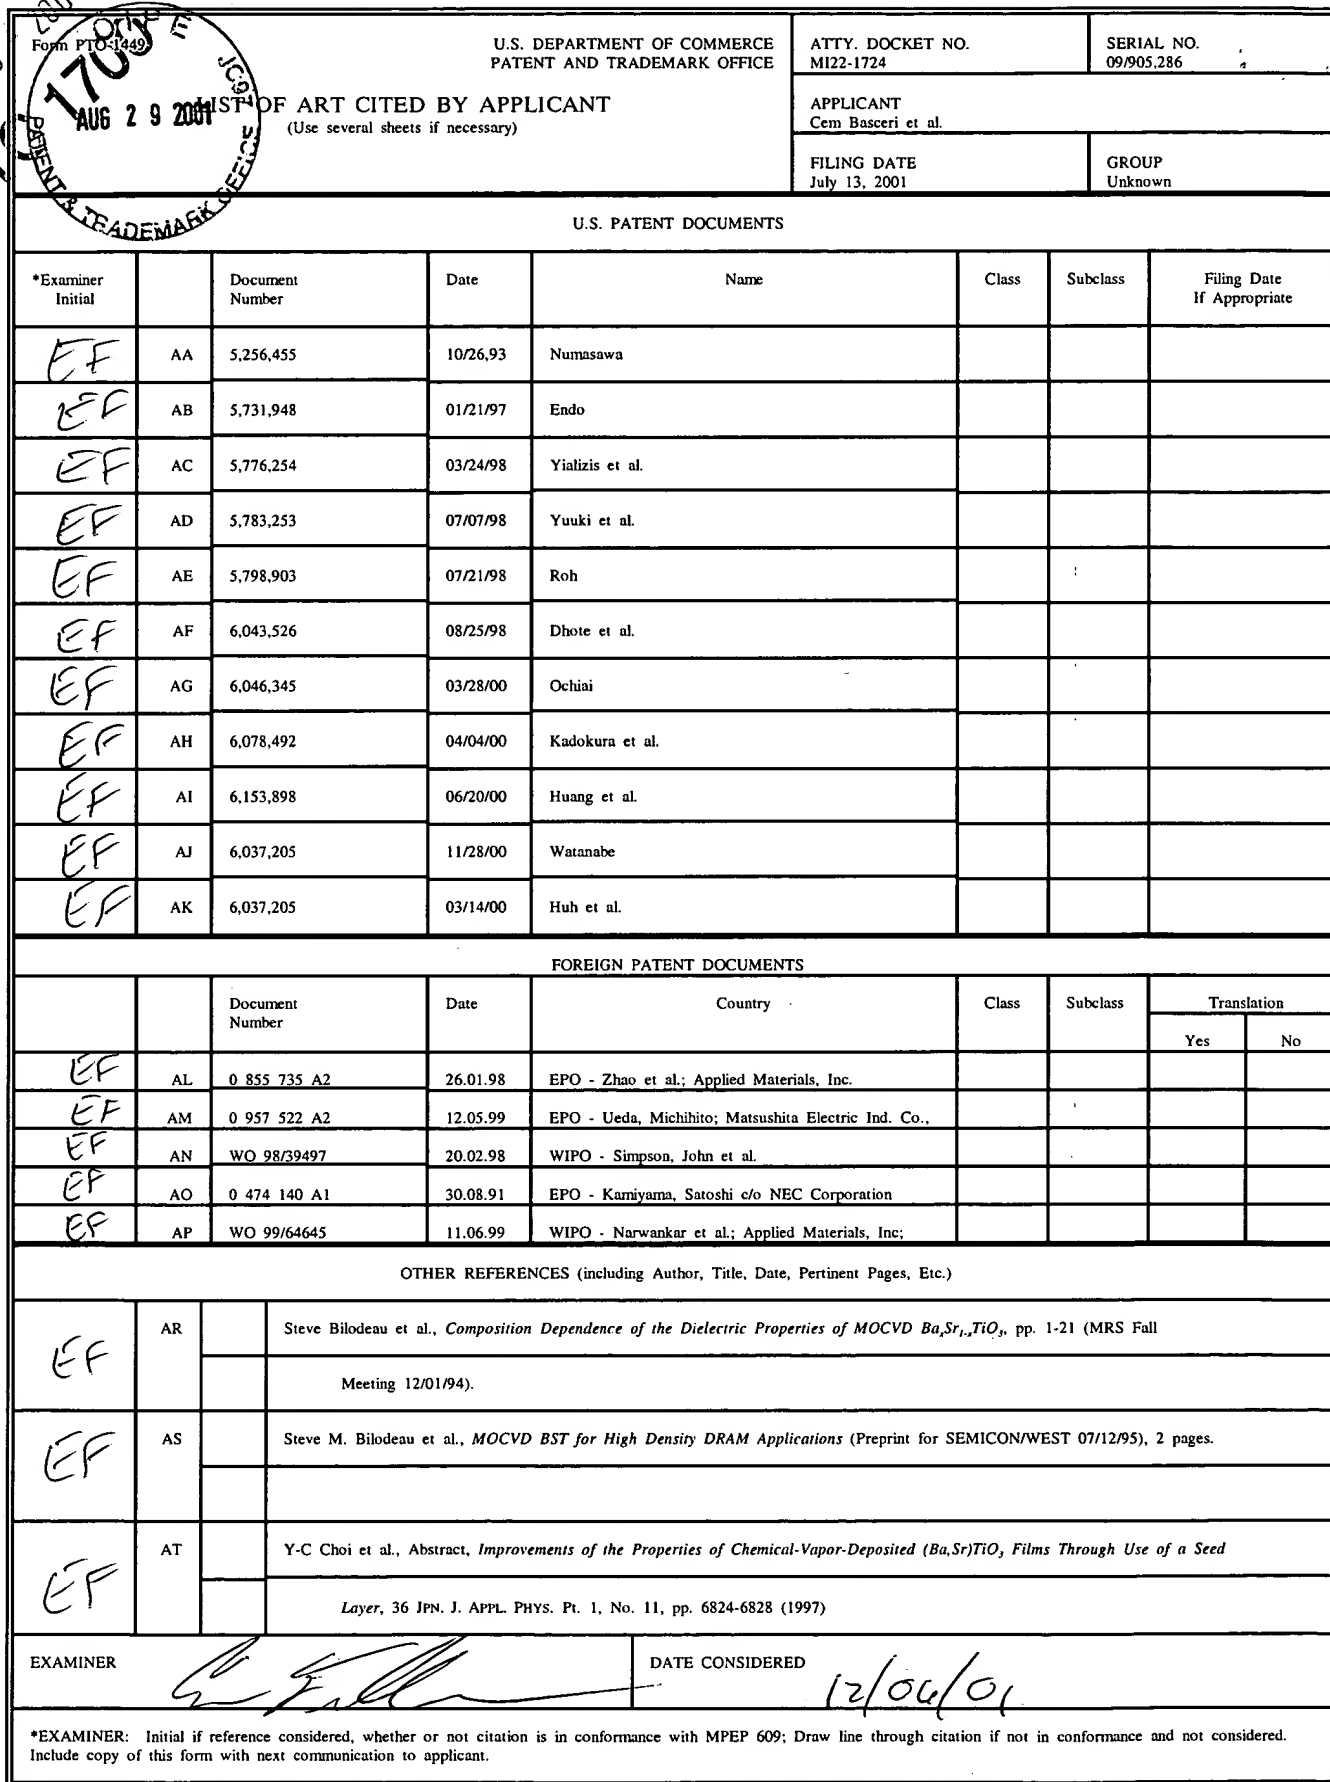 Form PTO-1449
U.S. DEPARTMENT OF COMMERCE
PATENT AND TRADEMARK OFFICE
ATTY. DOCKET NO.
MI22-1724
SERIAL NO.
09/905,286
AUG 2 9 2001
PATENT & TRADEMARK OFFICE
LIST OF ART CITED BY APPLICANT
(Use several sheets if necessary)
APPLICANT
Cem Basceri et al.
FILING DATE
July 13, 2001
GROUP
Unknown
U.S. PATENT DOCUMENTS
*Examiner Initial Document Number Date Name Class Subclass Filing Date If Appropriate
EF AA 5,256,455 10/26,93 Numasawa
EF AB 5,731,948 01/21/97 Endo
EF AC 5,776,254 03/24/98 Yializis et al.
EF AD 5,783,253 07/07/98 Yuuki et al.
EF AE 5,798,903 07/21/98 Roh
EF AF 6,043,526 08/25/98 Dhote et al.
EF AG 6,046,345 03/28/00 Ochiai
EF AH 6,078,492 04/04/00 Kadokura et al.
EF AI 6,153,898 06/20/00 Huang et al.
EF AJ 6,037,205 11/28/00 Watanabe
EF AK 6,037,205 03/14/00 Huh et al.
FOREIGN PATENT DOCUMENTS
Document Number Date Country Class Subclass Translation
Yes No
EF AL 0 855 735 A2 26.01.98 EPO - Zhao et al.; Applied Materials, Inc.
EF AM 0 957 522 A2 12.05.99 EPO - Ueda, Michihito; Matsushita Electric Ind. Co.,
EF AN WO 98/39497 20.02.98 WIPO - Simpson, John et al.
EF AO 0 474 140 A1 30.08.91 EPO - Kamiyama, Satoshi c/o NEC Corporation
EF AP WO 99/64645 11.06.99 WIPO - Narwankar et al.; Applied Materials, Inc;
OTHER REFERENCES (including Author, Title, Date, Pertinent Pages, Etc.)
EF AR Steve Bilodeau et al., Composition Dependence of the Dielectric Properties of MOCVD BaxSr1-xTiO3, pp. 1-21 (MRS Fall
Meeting 12/01/94).
EF AS Steve M. Bilodeau et al., MOCVD BST for High Density DRAM Applications (Preprint for SEMICON/WEST 07/12/95), 2 pages.
EF AT Y-C Choi et al., Abstract, Improvements of the Properties of Chemical-Vapor-Deposited (Ba,Sr)TiO3 Films Through Use of a Seed
Layer, 36 JPN. J. APPL. PHYS. Pt. 1, No. 11, pp. 6824-6828 (1997)
EXAMINER
DATE CONSIDERED 12/06/01
*EXAMINER: Initial if reference considered, whether or not citation is in conformance with MPEP 609; Draw line through citation if not in conformance and not considered.
Include copy of this form with next communication to applicant.